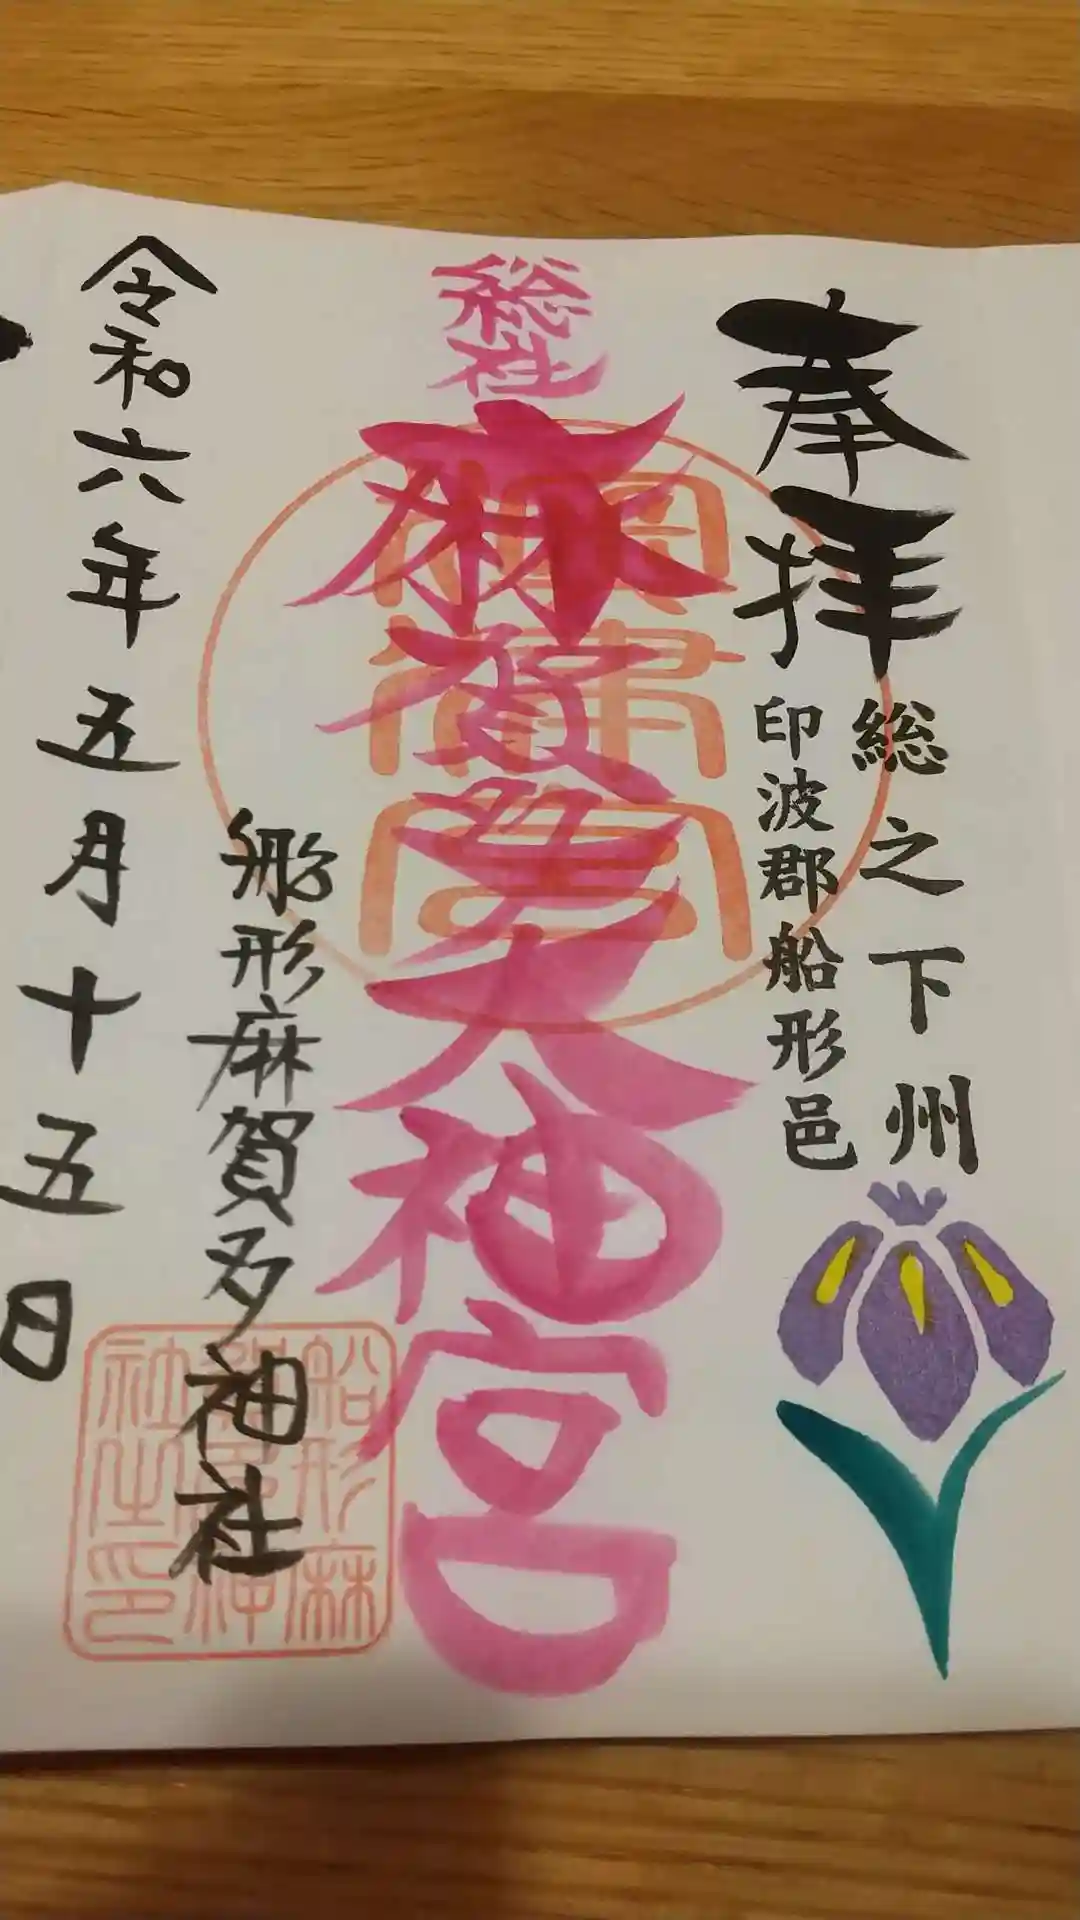 奉拝
総之下州
印波郡船形邑
総社
麻賀多大神宮
船形麻賀多神社
船形麻
賀多神
社之印
令和六年五月十五日